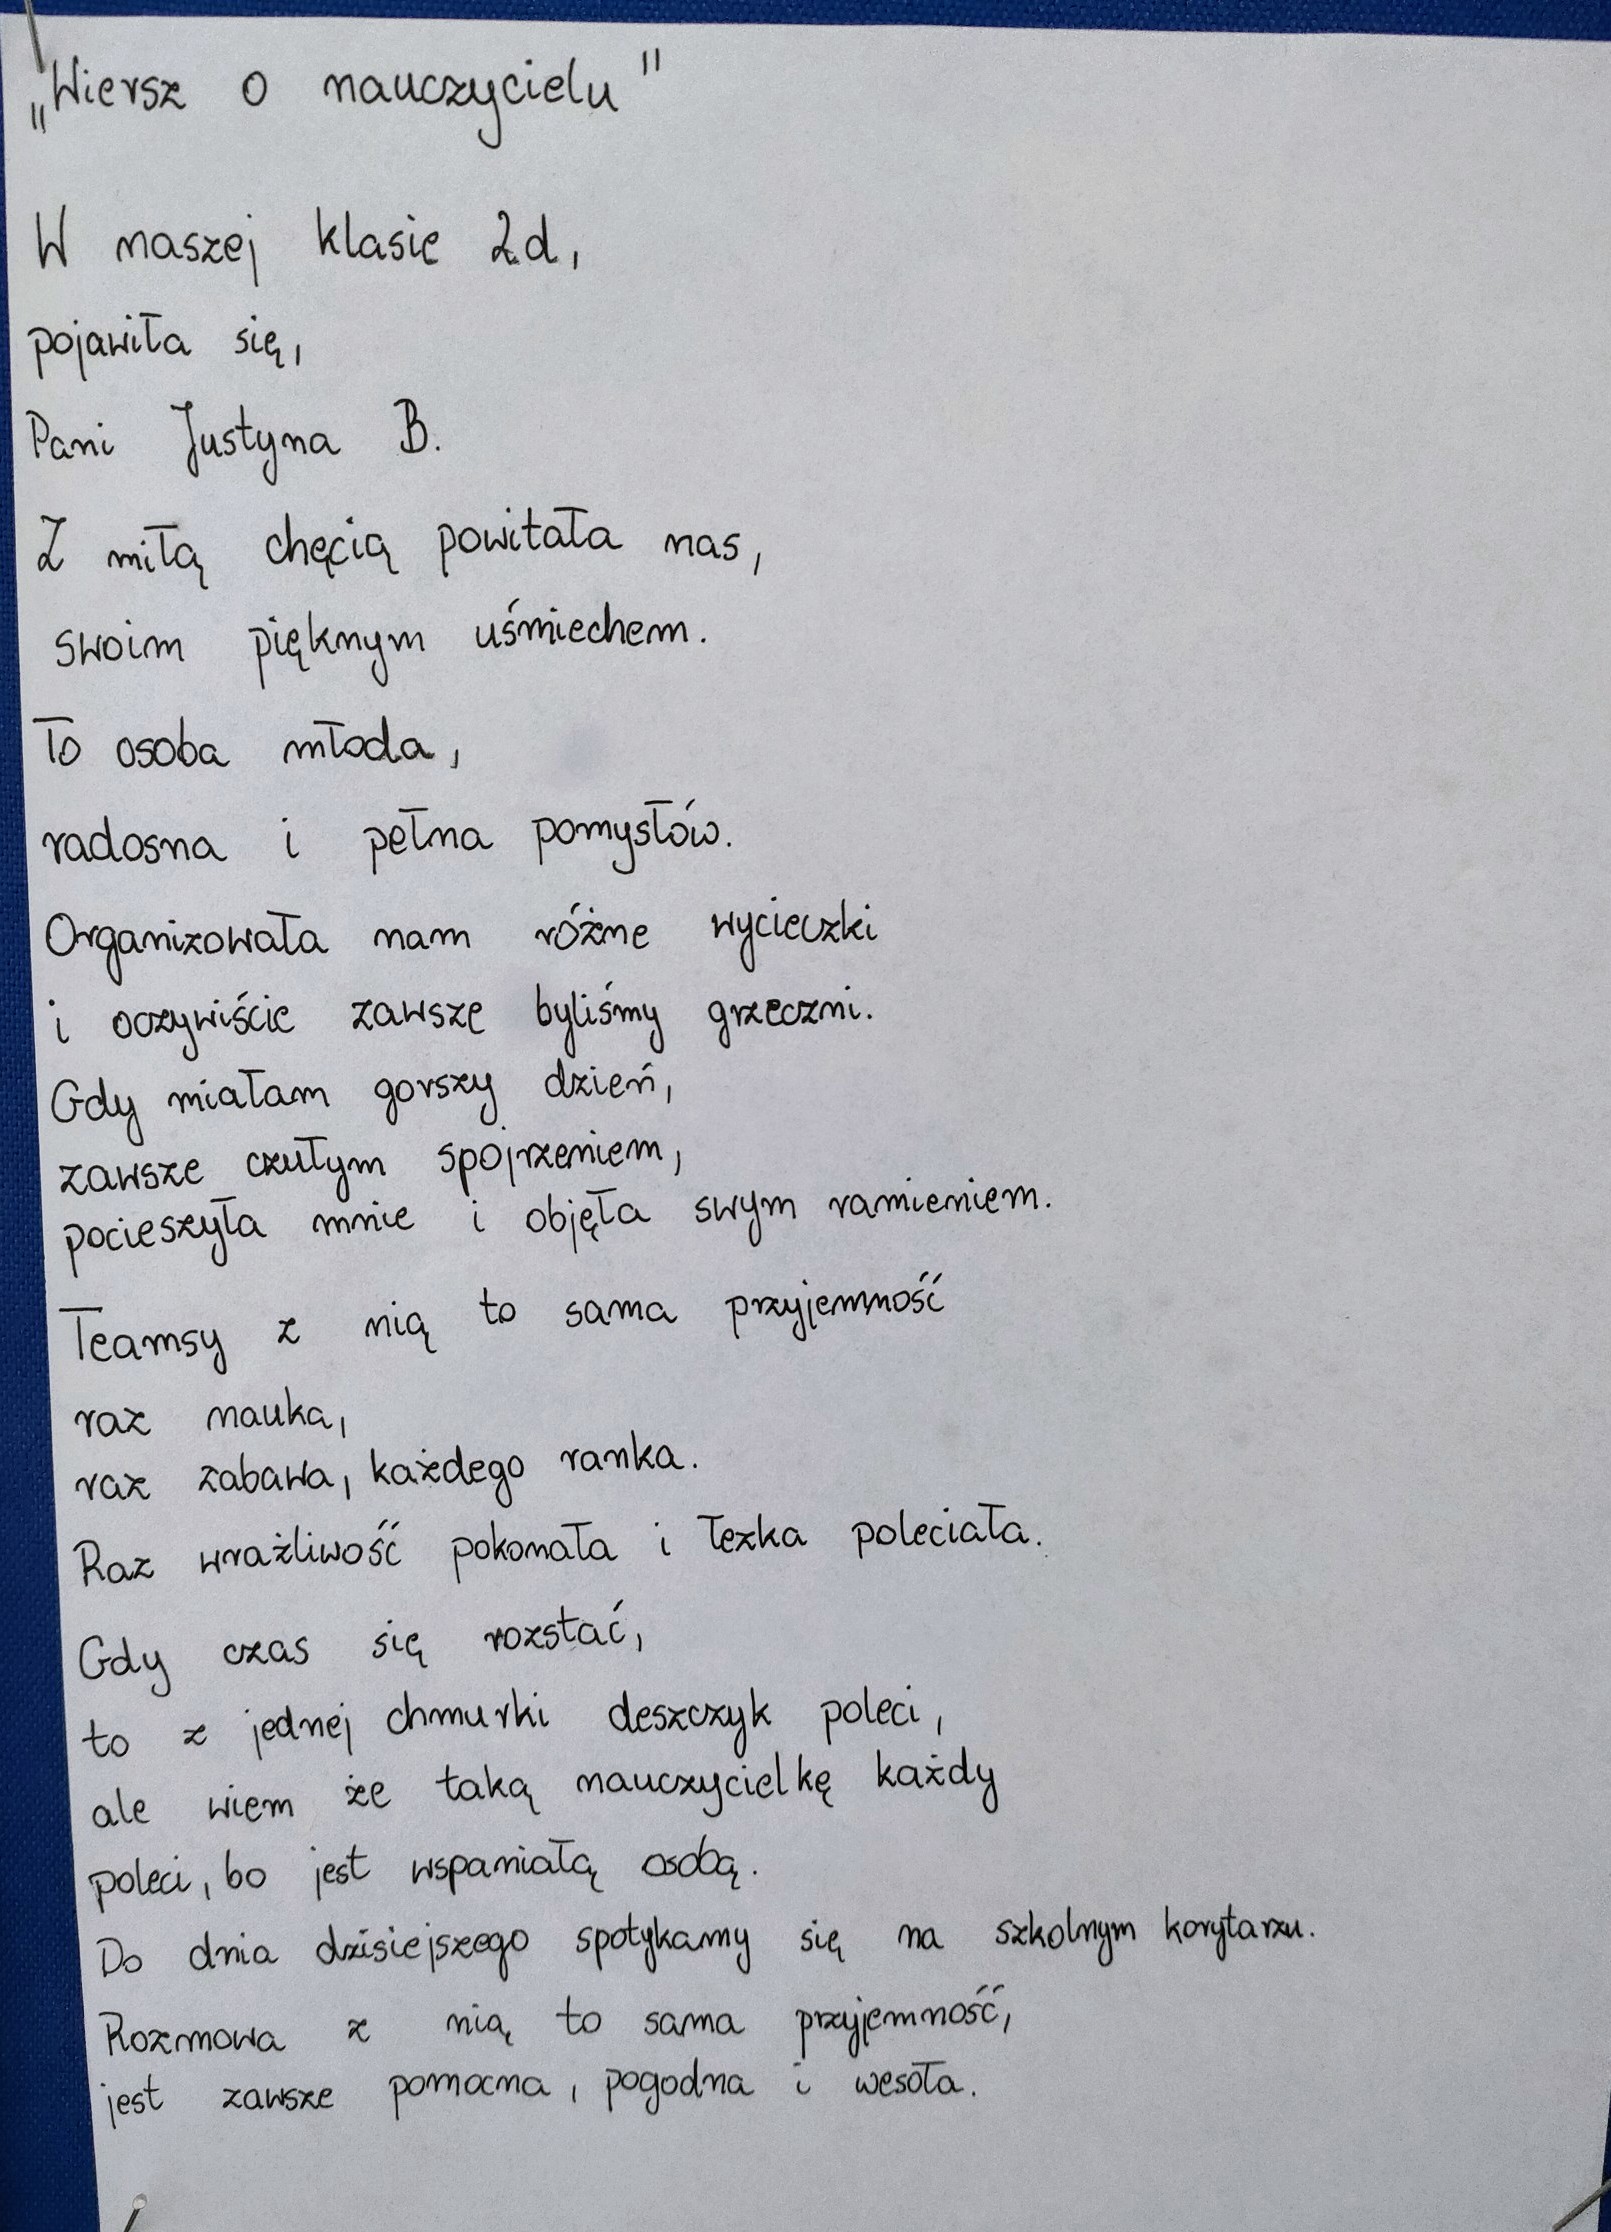 „Wiersz o nauczycielu"
W naszej klasie 2d,
pojawiła się,
Pani Justyna B.
Z miłą chęcią powitała nas,
swoim pięknym uśmiechem.
To osoba młoda,
radosna i pełna pomysłów.
Organizowała nam różne wycieczki
i oczywiście zawsze byliśmy grzeczni.
Gdy miałam gorszy dzień,
zawsze czułym spojrzeniem,
pocieszyła mnie i objęła swym ramieniem.
Teamsy z nią to sama przyjemność
raz nauka,
raz zabawa, każdego ranka.
Raz wrażliwość pokonała i łezka poleciała.
Gdy czas się rozstać,
to z jednej chmurki deszczyk poleci,
ale wiem że taką nauczycielkę każdy
poleci, bo jest wspaniałą osobą.
Do dnia dzisiejszego spotykamy się na szkolnym korytarzu.
Rozmowa z nią to sama przyjemność,
jest zawsze pomocna, pogodna i wesoła.